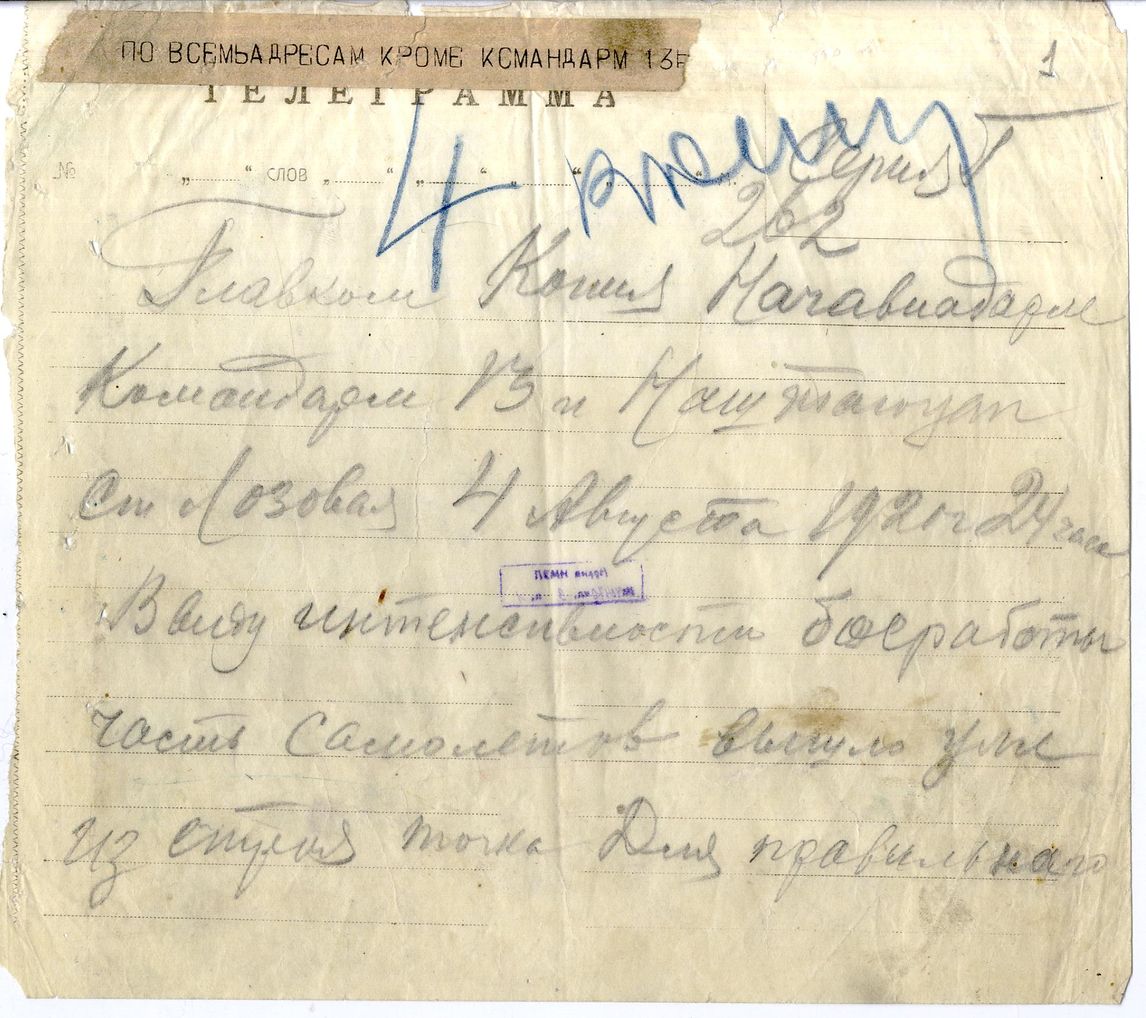 ПО ВСЕМЬАДРЕСАМ КРОМЕ КСМАНДАРМ 13
1
ТЕЛЕГРАММА
4
№ „ “ СЛОВ „ “ „ “ „ “ „ “
Серия
262
Главком Копия Начавиадарм
Командарм 13 и
Ст Лозовая 4 Августа 1920г 24 часа
Ввиду интенсивности боеработы
часть самолетов вышло уже
из строя точка Для правильного